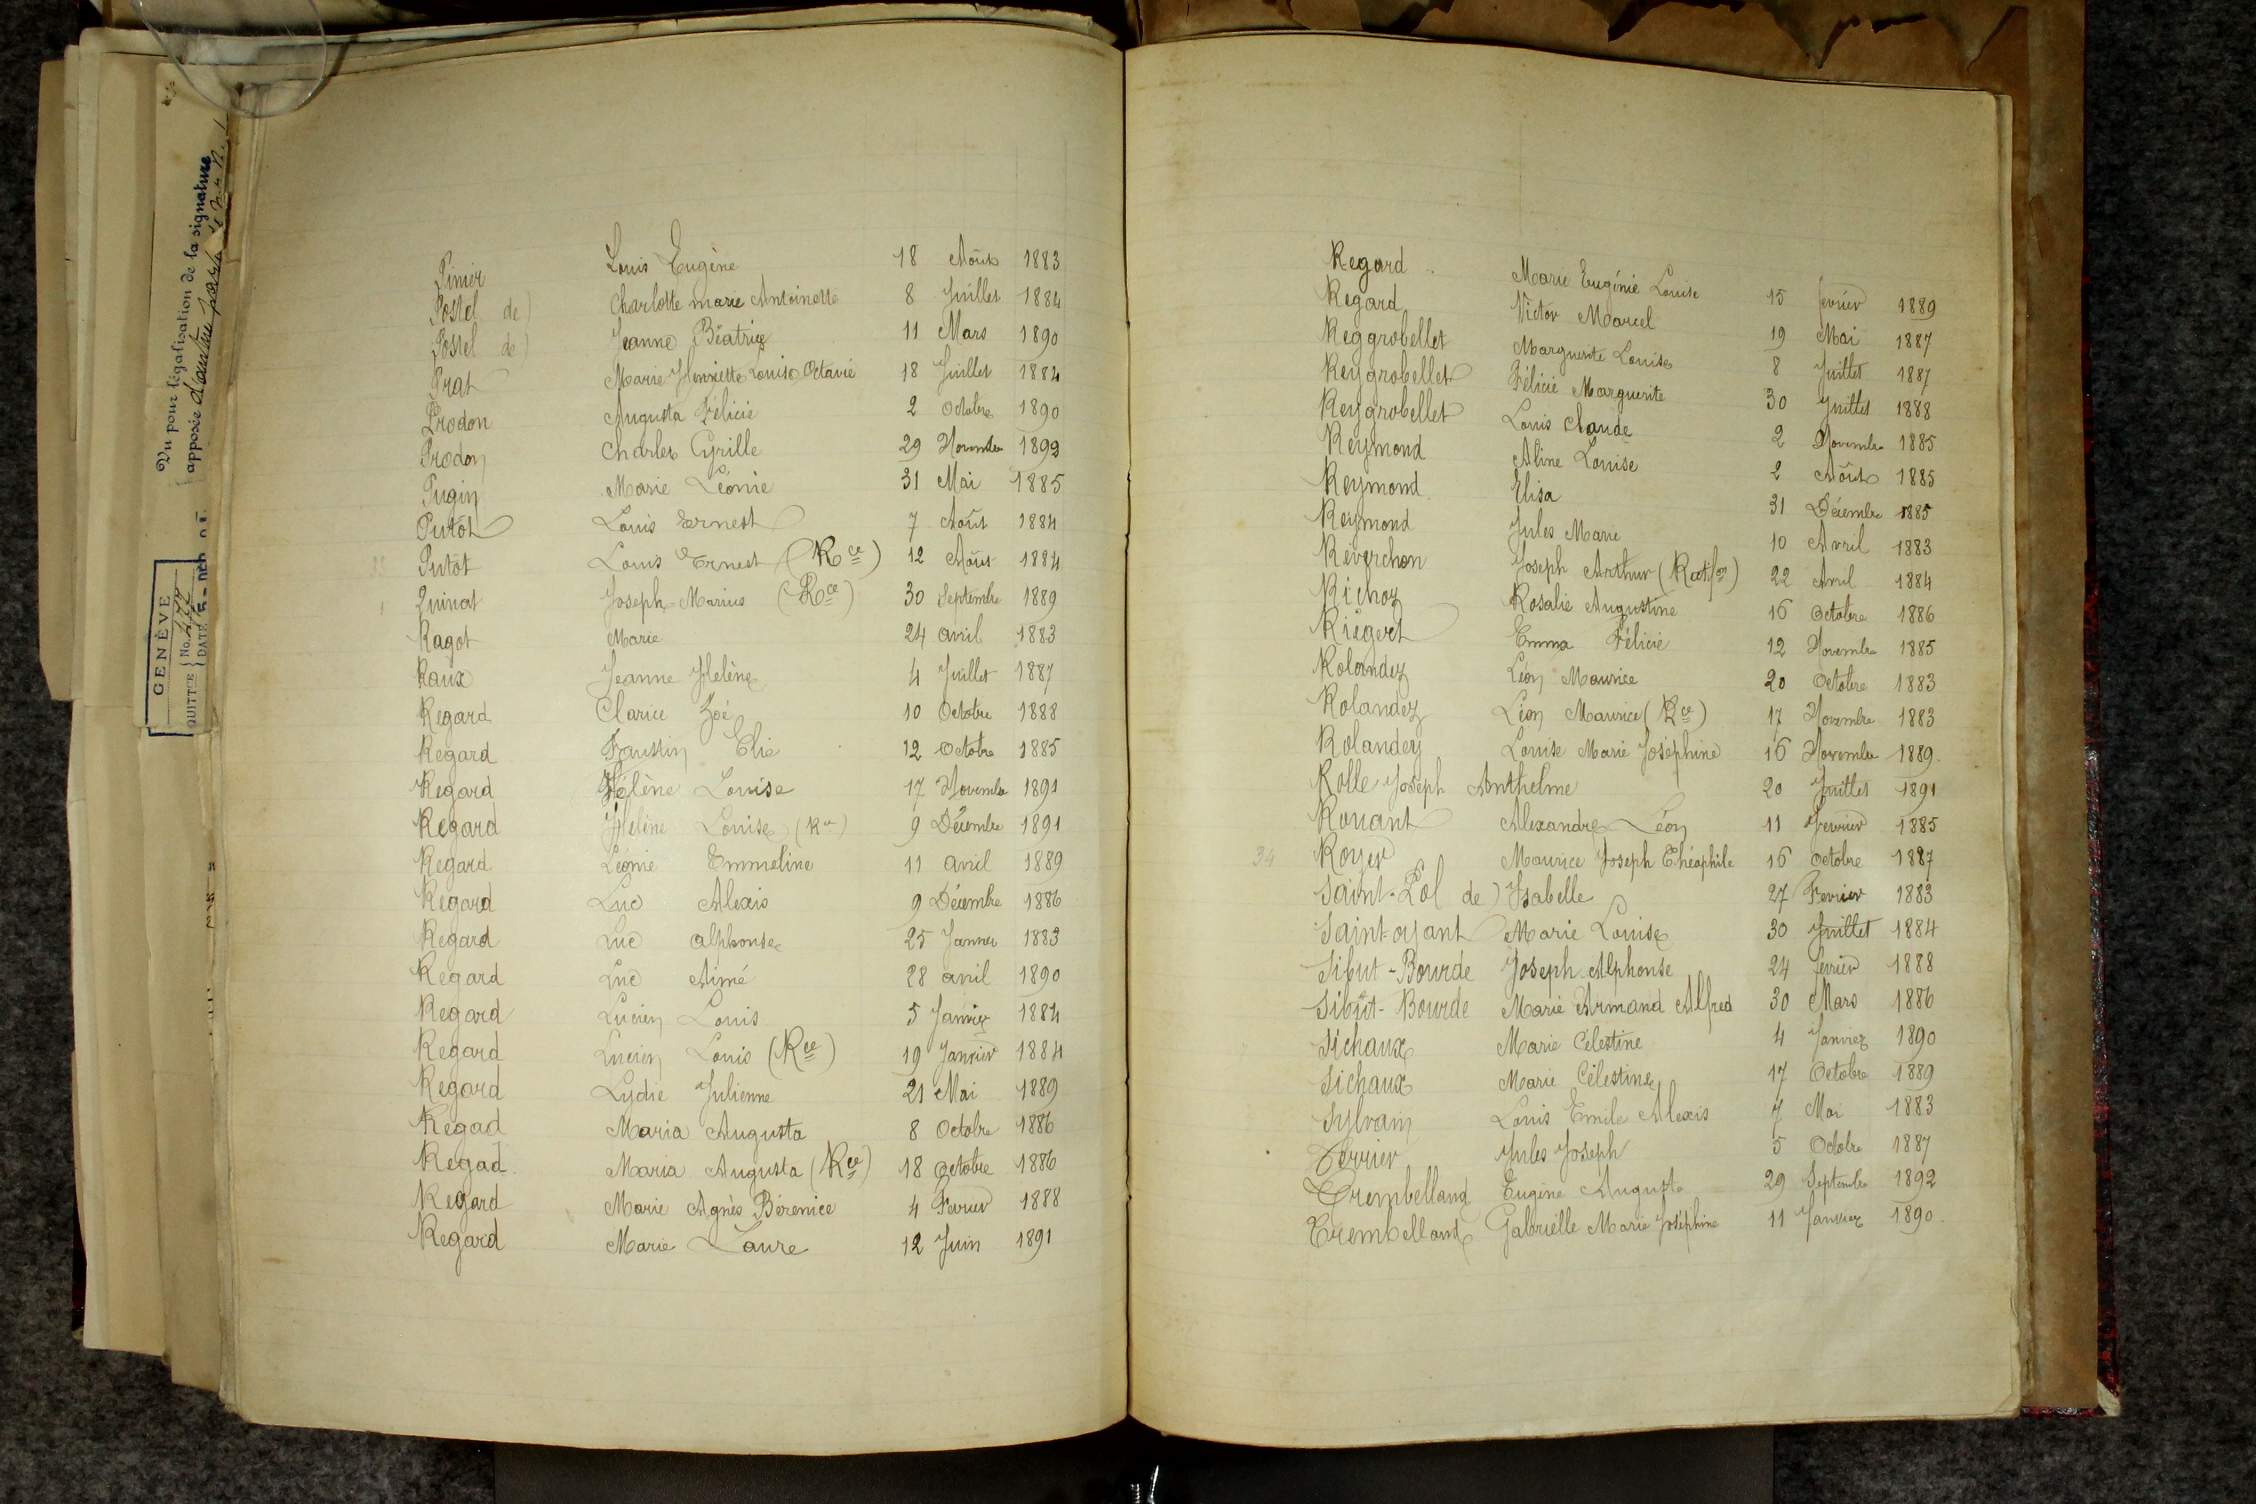 Vu pour légalisation de la signature
apposée d'autre part
GENÈVE
QUITTCE No. 477
DATE
Pinier Louis Eugène 18 Août 1883
Postel de) Charlotte marie Antoinette 8 Juillet 1884
Postel de) Jeanne Béatrix 11 Mars 1890
Prat Marie Henriette Louise Octavie 18 Juillet 1884
Prodon Augusta Félicie 2 Octobre 1890
Prodon Charles Cyrille 29 Novembre 1892
Pugin Marie Léonie 31 Mai 1885
Putôt Louis Ernest 7 Août 1884
33 Putôt Louis Ernest (Rce) 12 Août 1884
Quinat Joseph Marius (Rce) 30 Septembre 1889
Ragot Marie 24 avril 1883
Raux Jeanne Helène 4 Juillet 1887
Regard Clarice Zoé 10 Octobre 1888
Regard Faustin Elie 12 Octobre 1885
Regard Hélène Louise 17 Novembre 1891
Regard Helène Louise (Rce) 9 Décembre 1891
Regard Léonie Emmeline 11 avril 1889
Regard Luc Alexis 9 Décembre 1886
Regard Luc alphonse 25 Janvier 1883
Regard Luc Aimé 28 avril 1890
Regard Lucien Louis 5 Janvier 1884
Regard Lucien Louis (Rce) 19 Janvier 1884
Regard Lydie Julienne 21 Mai 1889
Regad Maria Augusta 8 Octobre 1886
Regad Maria Augusta (Rce) 18 Octobre 1886
Regard Marie Agnès Bérenice 4 Fevrier 1888
Regard Marie Laure 12 Juin 1891
Regard Marie Eugénie Louise 15 fevrier 1889
Regard Victor Marcel 19 Mai 1887
Reggrobellet Marguerite Louise 8 Juillet 1887
Reygrobellet Félicie Marguerite 30 Juillet 1888
Reygrobellet Louis Claude 2 Novembre 1885
Reymond Aline Louise 2 Août 1885
Reymond Elisa 31 Décembre 1885
Reymond Jules Marie 10 Avril 1883
Reverchon Joseph Arthur (Ratifon) 22 Avril 1884
Richoz Rosalie Augustine 16 Octobre 1886
Riegert Emma Félicie 12 Novembre 1885
Rolandez Léon Maurice 20 Octobre 1883
Rolandez Léon Maurice (Rce) 17 Novembre 1883
Rolandez Louise Marie Joséphine 16 Novembre 1889
Rolle Joseph Anthelme 20 Juillet 1891
Rouant Alexandre Léon 11 Fevrier 1885
34 Royer Maurice Joseph Théophile 16 Octobre 1887
Saint-Pol de) Isabelle 27 Fevrier 1883
Saint-oyant Marie Louise 30 Juillet 1884
Sibut-Bourde Joseph Alphonse 24 fevrier 1888
Sibut-Bourde Marie Armand Alfred 30 Mars 1886
Sichaux Marie Celestine 4 Janvier 1890
Sichaux Marie Célestine 17 Octobre 1889
Sylvain Louis Emile Alexis 7 Mai 1883
Terrier Jules Joseph 5 Octobre 1887
Trembelland Eugène Auguste 29 Septembre 1892
Trembelland Gabrielle Marie Joséphine 11 Janvier 1890